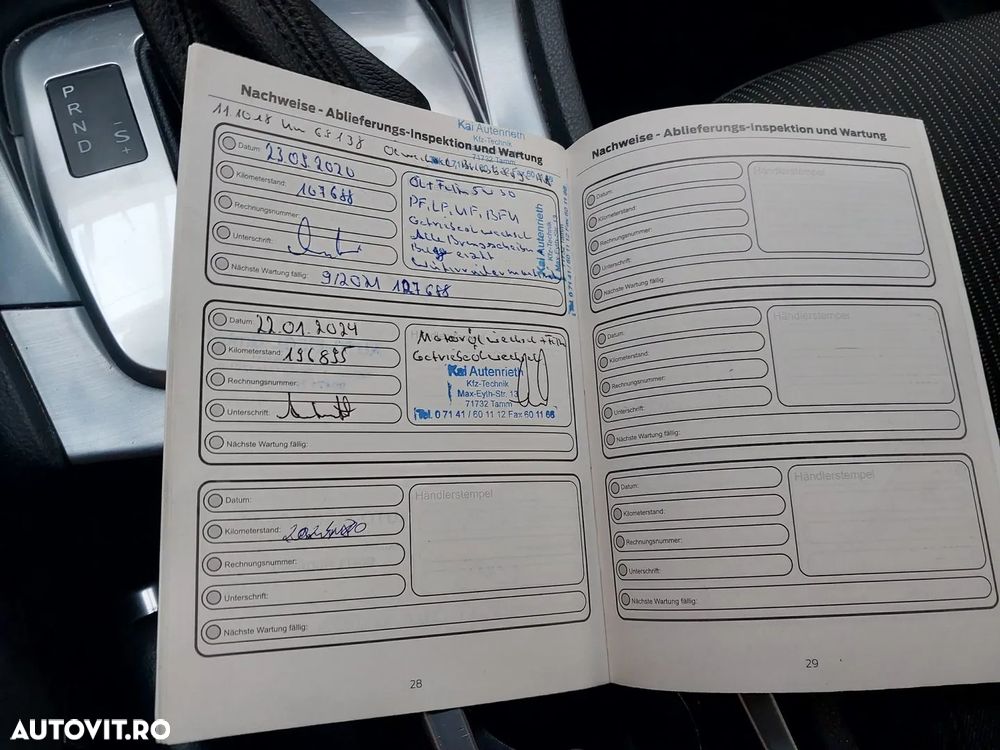 P
R
N
D
S
+
Nachweise - Ablieferungs-Inspektion und Wartung
Kai Autenrieth
Kfz-Technik
71732 Tamm
Datum: 23.09.2020
Kilometerstand: 107688
Rechnungsnummer:
Unterschrift:
Nächste Wartung fällig: 9/2021 127688
Öl + Filter 5W30
PF, LF, KF, BFW
Getriebeölwechsel
Kai Autenrieth
Kfz-Technik
Max-Eyth-Str. 13
Tel. 0 71 41 / 60 11 12 Fax 60 11 66
Datum: 22.01.2024
Kilometerstand: 196895
Rechnungsnummer:
Unterschrift:
Nächste Wartung fällig:
Motorölwechsel + Filter
Getriebeölwechsel
Kai Autenrieth
Kfz-Technik
Max-Eyth-Str. 13
71732 Tamm
Tel. 0 71 41 / 60 11 12 Fax 60 11 66
Datum:
Kilometerstand:
Rechnungsnummer:
Unterschrift:
Nächste Wartung fällig:
Händlerstempel
28
Nachweise - Ablieferungs-Inspektion und Wartung
Datum:
Kilometerstand:
Rechnungsnummer:
Unterschrift:
Nächste Wartung fällig:
Händlerstempel
Datum:
Kilometerstand:
Rechnungsnummer:
Unterschrift:
Nächste Wartung fällig:
Händlerstempel
Datum:
Kilometerstand:
Rechnungsnummer:
Unterschrift:
Nächste Wartung fällig:
Händlerstempel
29
AUTOVIT.RO